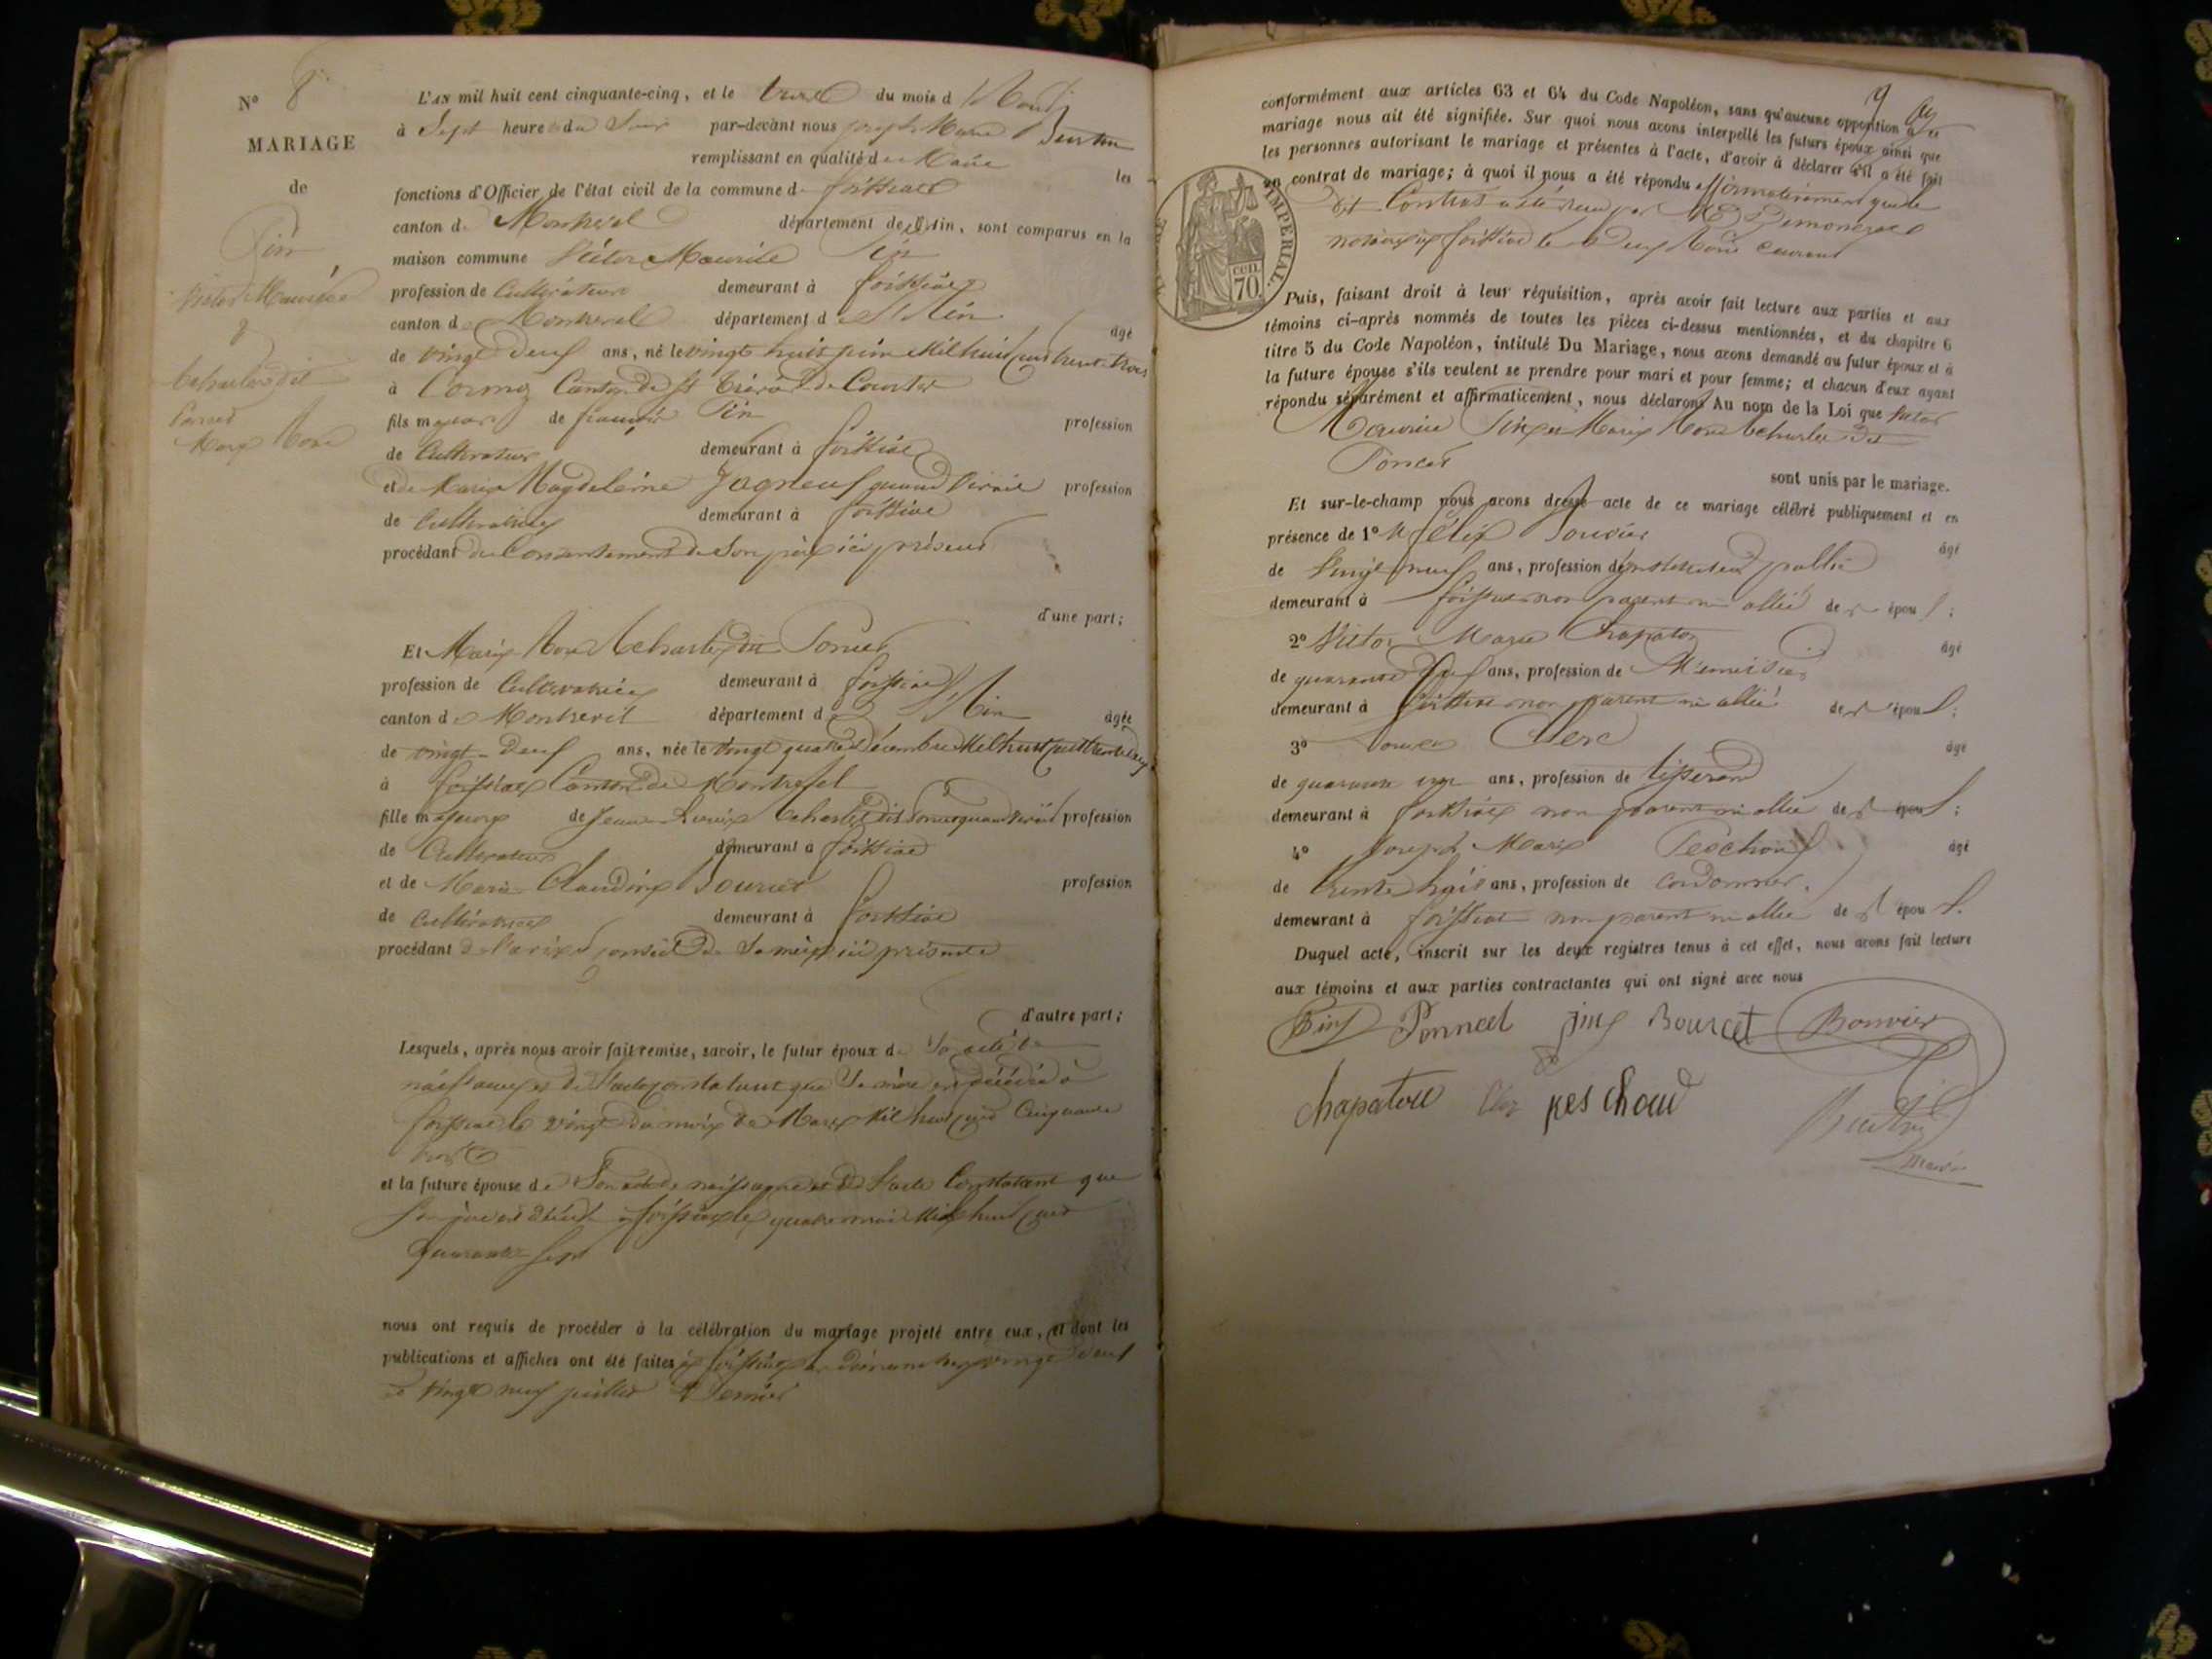 N° 8
MARIAGE
de
Pin
Victor Maurice
&
dit
Poncet
Marie
L'AN mil huit cent cinquante-cinq, et le du mois d
à Sept heures du Soir par-devant nous joseph Marie
remplissant en qualité de Maire les
fonctions d'Officier de l'état civil de la commune de foissiat
canton de Montrevel département de l'Ain, sont comparus en la
maison commune Victor Maurice Pin
profession de Cultivateur demeurant à foissiat
canton de Montrevel département de l'Ain âgé
de vingt deux ans, né le vingt huit juin Mil huit cent trente trois
à Cormoz Canton de St de Courtes
fils majeur de françois Pin profession
de Cultivateur demeurant à foissiat
et de Marie Magdeleine quand vivait profession
de Cultivatrice demeurant à foissiat
procédant du Consentement de Son père ici présent
d'une part;
Et Marie dit Poncet
profession de Cultivatrice demeurant à foissiat
canton de Montrevel département de l'Ain âgée
de vingt-deux ans, née le vingt quatre Décembre Mil huit cent trente deux
à foissiat Canton de Montrevel
fille majeure de dit Poncet quand vivait profession
de Cultivateur demeurant à foissiat
et de Marie Claudine Bourcet profession
de Cultivatrice demeurant à foissiat
procédant de l'avis et conseil de Sa mère ici présente
d'autre part;
Lesquels, après nous avoir fait remise, savoir, le futur époux de Son acte de
naissance et de l'acte constatant que Sa mère est décédée à
foissiat le vingt du mois de Mars Mil huit cent Cinquante
et la future épouse de Son acte de naissance et de l'acte Constatant que
Son père est décédé à foissiat le quatre mai Mil huit cent
quarante Sept
nous ont requis de procéder à la célébration du mariage projeté entre eux, et dont les
publications et affiches ont été faites à foissiat les dimanches vingt deux
et vingt neuf juillet dernier
conformément aux articles 63 et 64 du Code Napoléon, sans qu'aucune opposition à ce
mariage nous ait été signifiée. Sur quoi nous avons interpellé les futurs époux ainsi que
les personnes autorisant le mariage et présentes à l'acte, d'avoir à déclarer s'il a été fait
un contrat de mariage; à quoi il nous a été répondu affirmativement que le
dit Contrat a été reçu par Me
notaire à foissiat le deux courant
IMPERIAL
70
Puis, faisant droit à leur réquisition, après avoir fait lecture aux parties et aux
témoins ci-après nommés de toutes les pièces ci-dessus mentionnées, et du chapitre 6
titre 5 du Code Napoléon, intitulé Du Mariage, nous avons demandé au futur époux et à
la future épouse s'ils veulent se prendre pour mari et pour femme; et chacun d'eux ayant
répondu séparément et affirmativement, nous déclarons Au nom de la Loi que Victor
Maurice Pin et Marie dit
Poncet
sont unis par le mariage.
Et sur-le-champ nous avons dressé acte de ce mariage célébré publiquement et en
présence de 1° félix Bouvier âgé
de vingt neuf ans, profession d'instituteur public
demeurant à foissiat non parent ni allié des époux;
2° Victor Marie Chapatou âgé
de quarante ans, profession de Menuisier
demeurant à foissiat non parent ni allié des époux;
3° Clerc âgé
de quarante ans, profession de tisserand
demeurant à foissiat non parent ni allié des époux;
4° Joseph Marie Peschoud âgé
de trente huit ans, profession de cordonnier
demeurant à foissiat non parent ni allié des époux.
Duquel acte, inscrit sur les deux registres tenus à cet effet, nous avons fait lecture
aux témoins et aux parties contractantes qui ont signé avec nous
Pin Ponncet pin Bourcet Bouvier
chapatou peschoud
maire